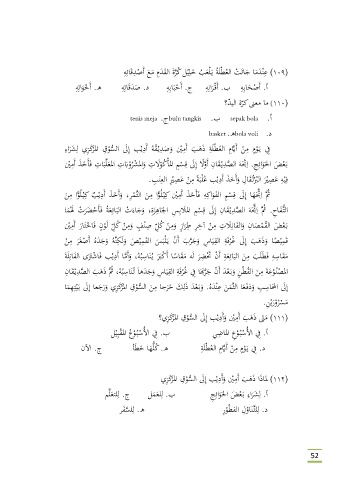 (١٠٩) عِنْدَمَا جَاءَتْ العُطْلَةُ يَلْعَبُ خَلِيْل كُرَّةَ القَدَمِ مَعَ أَصْدِقَائِهِ
أ. أَصْحَابِهِ ب. أَقْرَانِهِ ج. أَحْبَابِهِ د. صَدَقَائِهِ هـ. أَخْوَانِهِ
(١١٠) ما معنى كرّة اليدّ؟
أ. sepak bola ب. bulu tangkis ج. tenis meja
د. bola voli هـ. basket
فِي يَوْمٍ مِنْ أَيَّامِ العُطْلَةِ ذَهَبَ أَمِيْن وَصَدِيْقُهُ أَدِيْب إِلَى السُّوْقِ المَرْكَزِي لِشِرَاءِ
بَعْضِ الحَوَائِجِ. اِتَّجَهَ الصَّدِيْقَانِ أَوَّلًا إِلَى قِسْمِ المَأْكُوْلَاتِ وَالمَشْرُوْبَاتِ المُعَلَّبَاتِ فَأَخَذَ أَمِيْن
فِيْهِ عَصِيْرَ البُرْتُقَالِ وَأَخَذَ أَدِيْب عُلْبَةً مِنْ عَصِيْرِ العِنَبِ.
ثُمَّ اِتَّجَهَا إِلَى قِسْمِ الفَوَاكِهِ فَأَخَذَ أَمِيْن كِيْلُوًّا مِنَ التَّمْرِ، وَأَخَذَ أَدِيْبُ كِيْلُوًّا مِنَ
التُّفَاحِ. ثُمَّ اِتَّجَهَ الصَّدِيْقَانِ إِلَى قِسْمِ المَلَابِسِ الجَاهِزَةِ، وَجَاءَتْ البَائِعَةُ فَأَحْضَرَتْ لَهُمَا
بَعْضَ القُمْصَانِ وَالفَانِلَاتِ مِنْ آخِرِ طِرَازٍ وَمِنْ كُلِّ صِنْفٍ وَمِنْ كُلِّ لَوْنٍ فَاخْتَارَ أَمِيْن
قَمِيْصًا وَذَهَبَ إِلَى غُرْفَةِ القِيَاسِ وَجَرَّبَ أَنْ يَلْبَسَ القَمِيْصَ وَلَكِنَّهُ وَجَدَهُ أَصْغَرَ مِنْ
مَقَاسِهِ فَطَلَبَ مِنَ البَائِعَةِ أَنْ تُحْضِرَ لَهُ مَقَاسًا أَكْبَرَ يُنَاسِبُهُ، وَأَمَّا أَدِيْب فَاشْتَرَى الفَانِلَةَ
المَصْنُوْعَةَ مِنَ القُطْنِ وَبَعْدَ أَنْ جَرَّبَهَا فِي غُرْفَةِ القِيَاسِ وَجَدَهَا تُنَاسِبُهُ، ثُمَّ ذَهَبَ الصَّدِيْقَانِ
إِلَى المُحَاسِبِ وَدَفَعَا الثَّمَنَ عِنْدَهُ. وَبَعْدَ ذَلِكَ خَرَجَا مِنَ السُّوْقِ المَرْكَزِي وَرَجَعَا إِلَى بَيْتِهِمَا
مَسْرُوْرَيْنِ.
(١١١) مَتَى ذَهَبَ أَمِيْن وَأَدِيْب إِلَى السُّوْقِ المَرْكَزِي؟
أ. فِي الأُسْبُوْعِ المَاضِي ب. فِي الأُسْبُوْعِ المُقْبِيْل
ج. الآن د. فِي يَوْمٍ مِنْ أَيَّامِ العُطْلَةِ هـ. كُلُّهَا خَطَأٌ
(١١٢) لمَاذَا ذَهَبَ أَمِيْن وَأَدِيْب إِلَى السُّوْقِ المَرْكَزِي
أ. لِشِرَاءِ بَعْضَ الحَوَائِجِ ب. لِلعَمَلِ ج. لِلتَعَلُّمِ
د. لِلتَّنَاوُلِ الفَطُوْرِ هـ. لِلسَّفَرِ
52